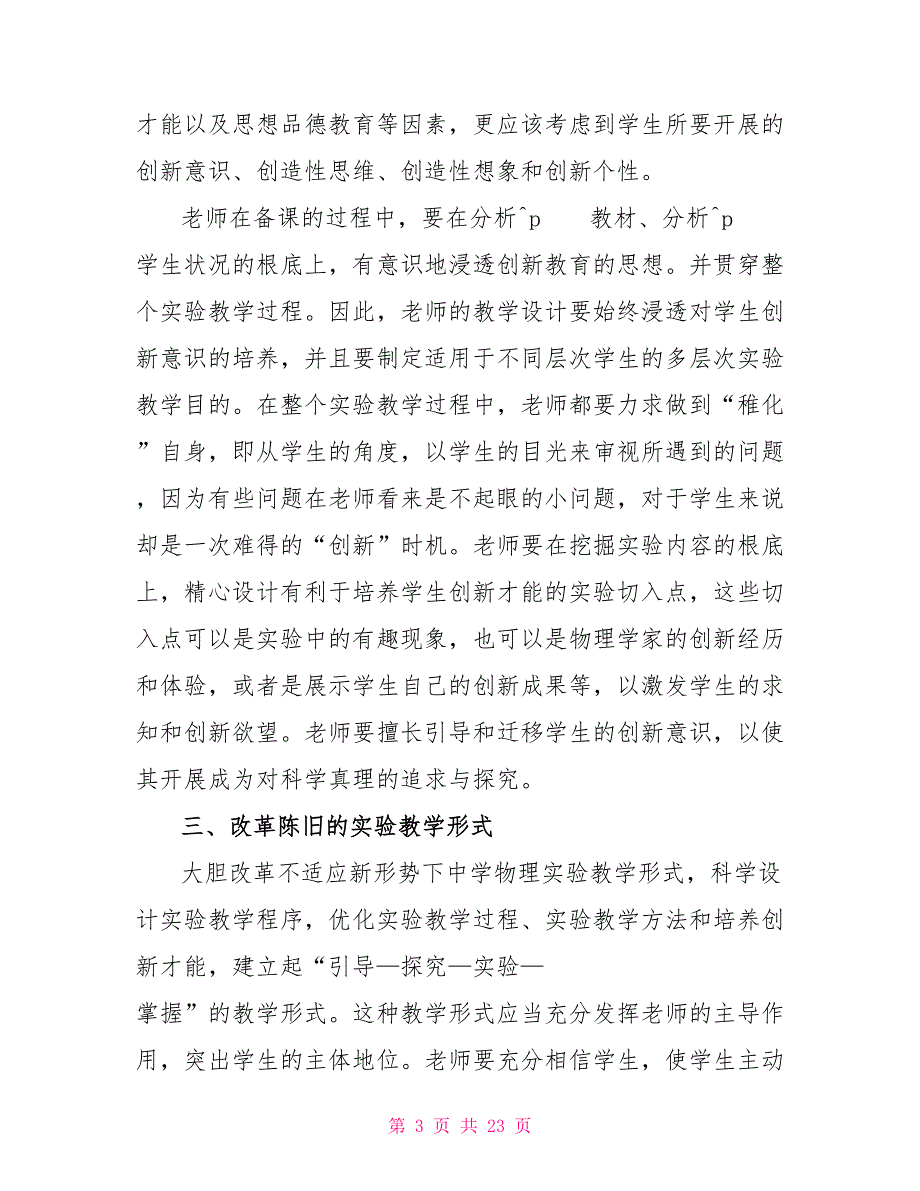 才能以及思想品德教育等因素，更应该考虑到学生所要开展的
创新意识、创造性思维、创造性想象和创新个性。
老师在备课的过程中，要在分析^p    教材、分析^p
学生状况的根底上，有意识地浸透创新教育的思想。并贯穿整
个实验教学过程。因此，老师的教学设计要始终浸透对学生创
新意识的培养，并且要制定适用于不同层次学生的多层次实验
教学目的。在整个实验教学过程中，老师都要力求做到“稚化
”自身，即从学生的角度，以学生的目光来审视所遇到的问题
，因为有些问题在老师看来是不起眼的小问题，对于学生来说
却是一次难得的“创新”时机。老师要在挖掘实验内容的根底
上，精心设计有利于培养学生创新才能的实验切入点，这些切
入点可以是实验中的有趣现象，也可以是物理学家的创新经历
和体验，或者是展示学生自己的创新成果等，以激发学生的求
知和创新欲望。老师要擅长引导和迁移学生的创新意识，以使
其开展成为对科学真理的追求与探究。
三、改革陈旧的实验教学形式
大胆改革不适应新形势下中学物理实验教学形式，科学设
计实验教学程序，优化实验教学过程、实验教学方法和培养创
新才能，建立起“引导—探究—实验—
掌握”的教学形式。这种教学形式应当充分发挥老师的主导作
用，突出学生的主体地位。老师要充分相信学生，使学生主动
第 3 页 共 23 页